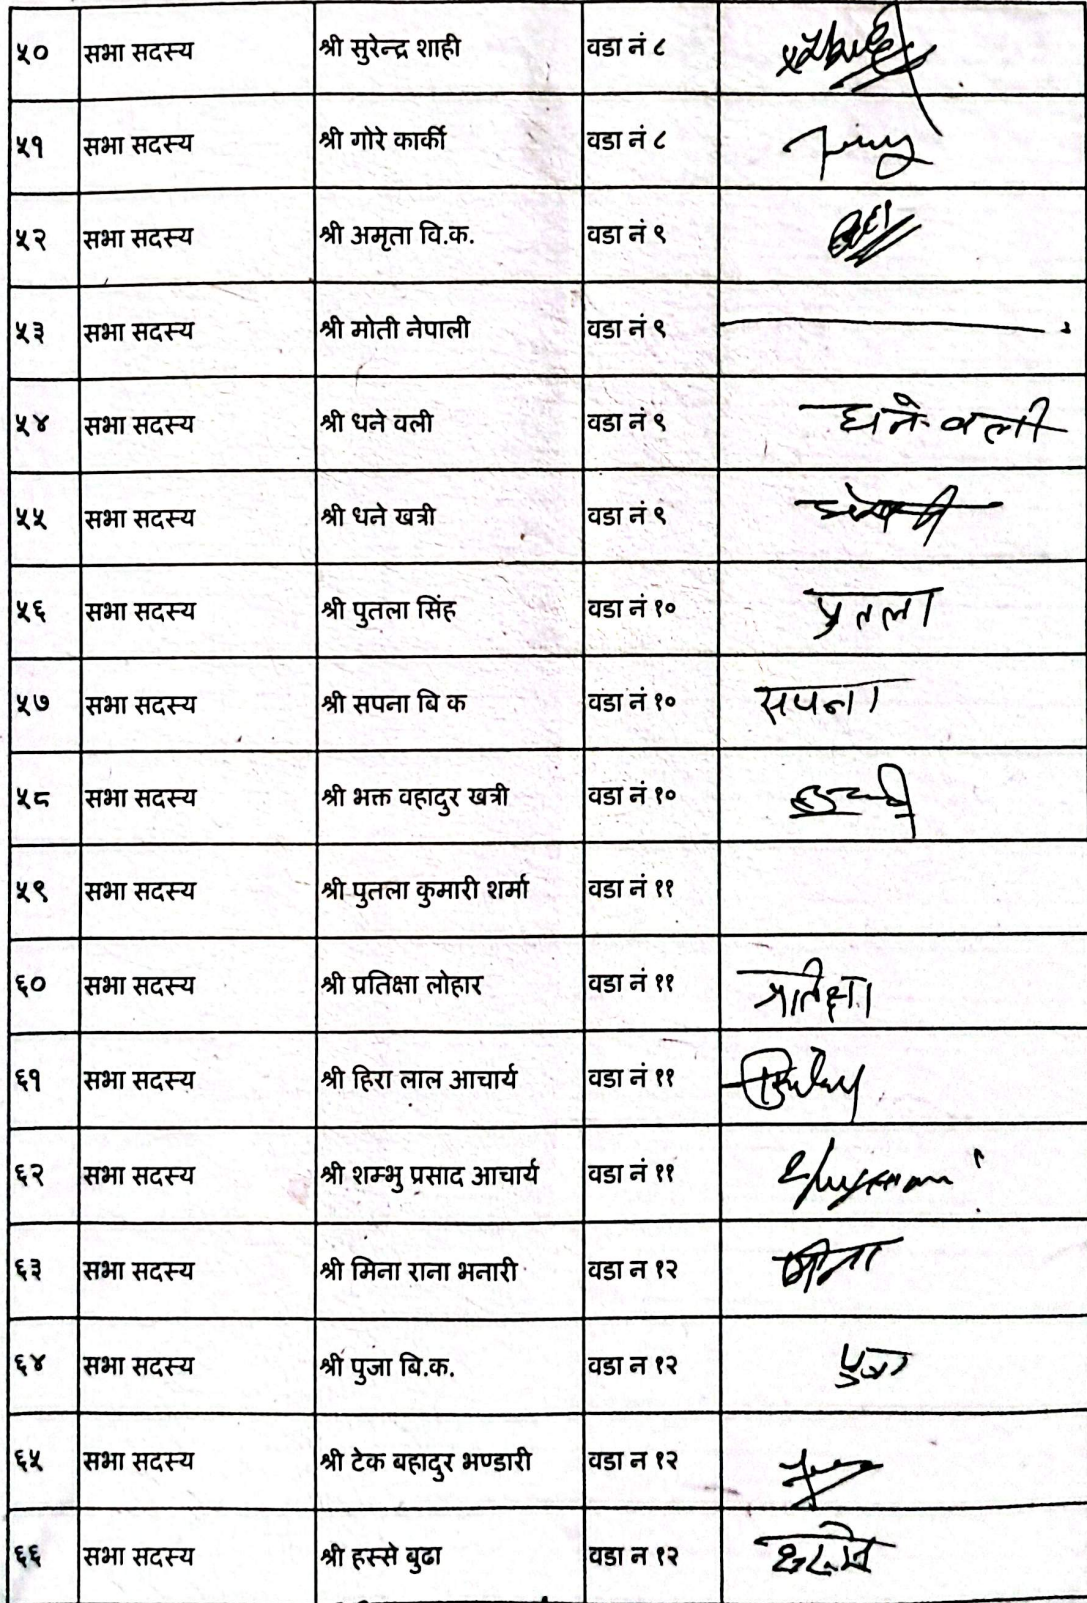 ५० सभा सदस्य श्री सुरेन्द्र शाही वडा नं ८
५१ सभा सदस्य श्री गोरे कार्की वडा नं ८
५२ सभा सदस्य श्री अमृता वि.क. वडा नं ९
५३ सभा सदस्य श्री मोती नेपाली वडा नं ९
५४ सभा सदस्य श्री धने वली वडा नं ९ धने वली
५५ सभा सदस्य श्री धने खत्री वडा नं ९
५६ सभा सदस्य श्री पुतला सिंह वडा नं १० पुतला
५७ सभा सदस्य श्री सपना बि क वडा नं १० सपना
५८ सभा सदस्य श्री भक्त वहादुर खत्री वडा नं १०
५९ सभा सदस्य श्री पुतला कुमारी शर्मा वडा नं ११
६० सभा सदस्य श्री प्रतिक्षा लोहार वडा नं ११ प्रतिक्षा
६१ सभा सदस्य श्री हिरा लाल आचार्य वडा नं ११
६२ सभा सदस्य श्री शम्भु प्रसाद आचार्य वडा नं ११
६३ सभा सदस्य श्री मिना राना भनारी वडा न १२ मिना
६४ सभा सदस्य श्री पुजा बि.क. वडा न १२ पुजा
६५ सभा सदस्य श्री टेक बहादुर भण्डारी वडा न १२
६६ सभा सदस्य श्री हस्से बुढा वडा न १२